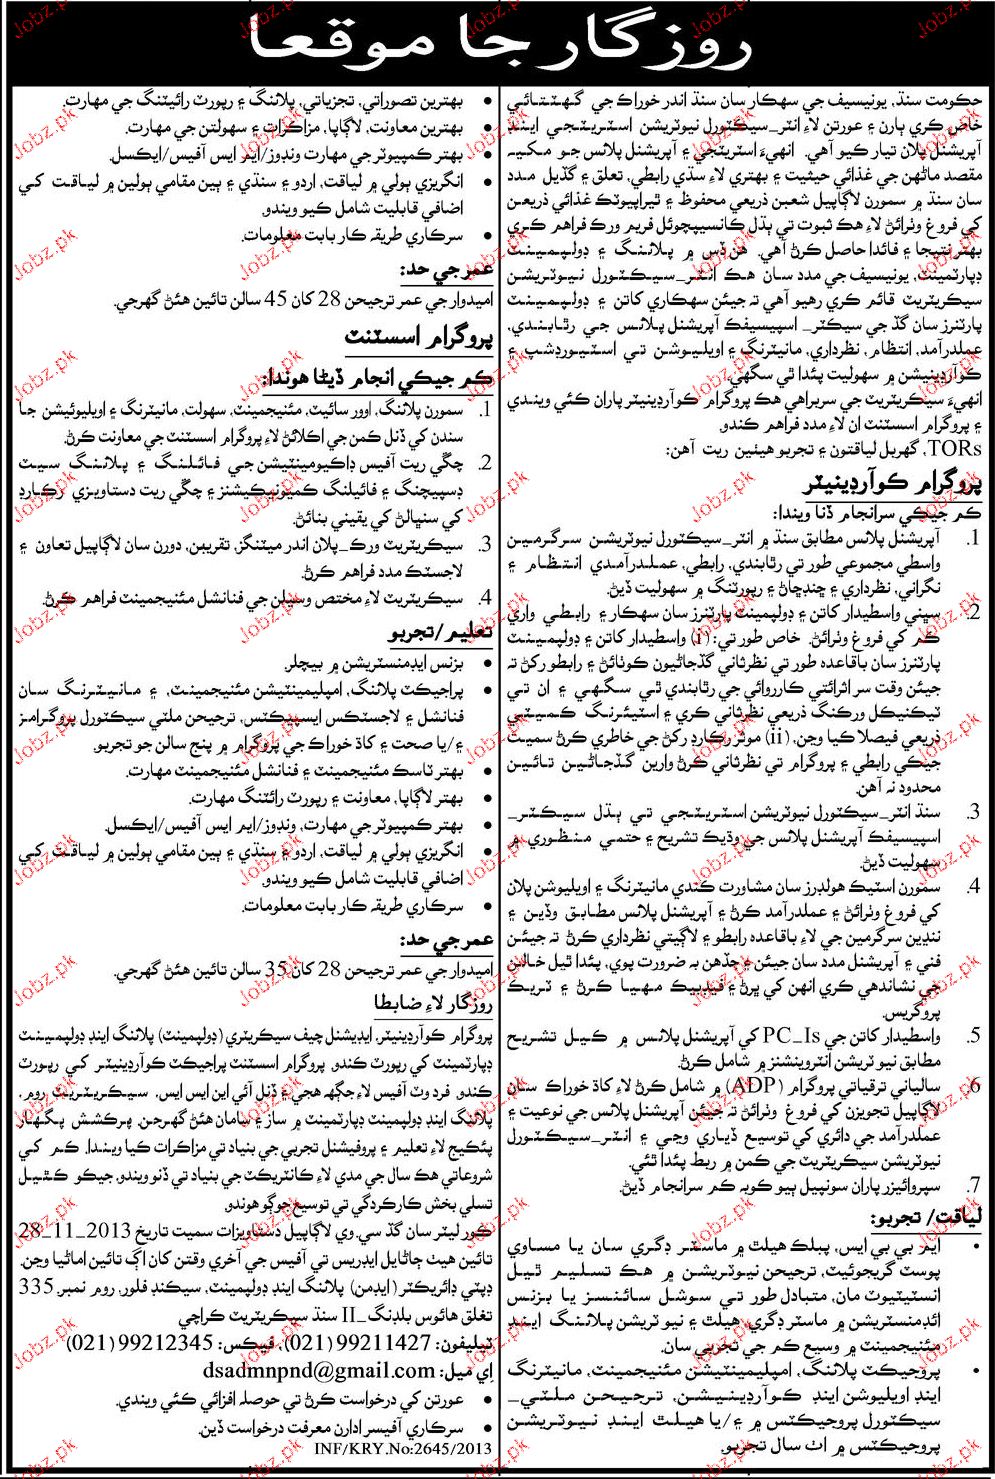 روزگار جا موقعا
حڪومت سنڌ، يونيسيف جي سهڪار سان سنڌ اندر خوراڪ جي گهٽتائي
خاص ڪري ٻارن ۽ عورتن لاءِ انٽر_سيڪٽورل نيوٽريشن اسٽريٽجي اينڊ
آپريشنل پلان تيار ڪيو آهي. انهيءَ اسٽريٽجي ۽ آپريشنل پلانس جو مکيه
مقصد ماڻهن جي غذائي حيثيت ۽ بهتري لاءِ سڌي رابطي، تعلق ۽ گڏيل مدد
سان سنڌ ۾ سمورن لاڳاپيل شعبن ذريعي محفوظ ۽ ٿيراپيوٽڪ غذائي ذريعن
کي فروغ وٺرائڻ لاءِ هڪ ثبوت تي ٻڌل ڪانسيپچوئل فريم ورڪ فراهم ڪري
بهتر نتيجا ۽ فائدا حاصل ڪرڻ آهي. هن ڏس ۾ پلاننگ ۽ ڊولپمينٽ
ڊپارٽمينٽ، يونيسيف جي مدد سان هڪ انٽر_سيڪٽورل نيوٽريشن
سيڪريٽريٽ قائم ڪري رهيو آهي ته جيئن سهڪاري کاتن ۽ ڊولپمينٽ
پارٽنرز سان گڏ جي سيڪٽر_ اسپيسيفڪ آپريشنل پلانس جي رٿابندي،
عملدرآمد، انتظام، نظرداري، مانيٽرنگ ۽ اويليوشن تي اسٽيورڊشپ ۽
ڪوآرڊينيشن ۾ سهوليت پئدا ٿي سگهي.
انهيءَ سيڪريٽريٽ جي سربراهي هڪ پروگرام ڪوآرڊينيٽر پاران ڪئي ويندي
۽ پروگرام اسسٽنٽ ان لاءِ مدد فراهم ڪندو.
TORs، گهربل لياقتون ۽ تجربو هيئين ريت آهن:
پروگرام ڪوآرڊينيٽر
ڪم جيڪي سرانجام ڏنا ويندا:
1. آپريشنل پلانس مطابق سنڌ ۾ انٽر_سيڪٽورل نيوٽريشن سرگرمين
واسطي مجموعي طور تي رٿابندي، رابطي، عملدرآمدي انتظام ۽
نگراني، نظرداري ۽ ڇنڊڇاڻ ۽ رپورٽنگ ۾ سهوليت ڏيڻ.
2. سڀني واسطيدار کاتن ۽ ڊولپمينٽ پارٽنرز سان سهڪار ۽ رابطي واري
ڪم کي فروغ وٺرائڻ. خاص طور تي: (i) واسطيدار کاتن ۽ ڊولپمينٽ
پارٽنرز سان باقاعده طور تي نظرثاني گڏجاڻيون ڪوٺائڻ ۽ رابطو رکڻ ته
جيئن وقت سر اثرائتي ڪارروائي جي رٿابندي ٿي سگهي ۽ ان تي
ٽيڪنيڪل ورڪنگ ذريعي نظرثاني ڪري ۽ اسٽيئرنگ ڪميٽي
ذريعي فيصلا ڪيا وڃن، (ii) موثر رڪارڊ رکڻ جي خاطري ڪرڻ سميت
جيڪي رابطي ۽ پروگرام تي نظرثاني ڪرڻ وارين گڏجاڻين تائين
محدود نه آهن.
3. سنڌ انٽر_سيڪٽورل نيوٽريشن اسٽريٽجي تي ٻڌل سيڪٽر_
اسپيسيفڪ آپريشنل پلانس جي وڌيڪ تشريح ۽ حتمي منظوري ۾
سهوليت ڏيڻ.
4. سمورن اسٽيڪ هولڊرز سان مشاورت ڪندي مانيٽرنگ ۽ اويليوشن پلان
کي فروغ وٺرائڻ ۽ عملدرآمد ڪرڻ ۽ آپريشنل پلانس مطابق وڏين ۽
ننڍين سرگرمين جي لاءِ باقاعده رابطو ۽ لاڳيتي نظرداري ڪرڻ ته جيئن
فني ۽ آپريشنل مدد سان جيئن ۽ جڏهن به ضرورت پوي، پئدا ٿيل خالن
جي نشاندهي ڪري انهن کي ڀرڻ ۽ فيڊبيڪ مهيا ڪرڻ ۽ ٽريڪ
پروگريس.
5. واسطيدار کاتن جي PC_Is کي آپريشنل پلانس ۾ ڪيل تشريح
مطابق نيوٽريشن انٽروينشنز ۾ شامل ڪرڻ.
6. سالياني ترقياتي پروگرام (ADP) ۾ شامل ڪرڻ لاءِ کاڌ خوراڪ سان
لاڳاپيل تجويزن کي فروغ وٺرائڻ ته جيئن آپريشنل پلانس جي نوعيت ۽
عملدرآمد جي دائري کي توسيع ڏياري وڃي ۽ انٽر_سيڪٽورل
نيوٽريشن سيڪريٽريٽ جي ڪمن ۾ ربط پئدا ٿئي.
7. سپروائيزر پاران سونپيل ٻيو ڪوبه ڪم سرانجام ڏيڻ.
لياقت/ تجربو:
• ايم بي بي ايس، پبلڪ هيلٿ ۾ ماسٽر ڊگري سان يا مساوي
پوسٽ گريجوئيٽ، ترجيحن نيوٽريشن ۾ هڪ تسليم ٿيل
انسٽيٽيوٽ مان، متبادل طور تي سوشل سائنسز يا بزنس
ائڊمنسٽريشن ۾ ماسٽر ڊگري، هيلٿ ۽ نيوٽريشن پلاننگ اينڊ
مئنيجمينٽ ۾ وسيع ڪم جي تجربي سان.
• پروجيڪٽ پلاننگ، امپليمينٽيشن مئنيجمينٽ، مانيٽرنگ
اينڊ اويليوشن اينڊ ڪوآرڊينيشن، ترجيحن ملٽي_
سيڪٽورل پروجيڪٽس ۾ ۽/يا هيلٿ اينڊ نيوٽريشن
پروجيڪٽس ۾ اٺ سال تجربو.
• بهترين تصوراتي، تجزياتي، پلاننگ ۽ رپورٽ رائيٽنگ جي مهارت.
• بهترين معاونت، لاڳاپا، مزاڪرات ۽ سهولتن جي مهارت.
• بهتر ڪمپيوٽر جي مهارت ونڊوز/ايم ايس آفيس/ايڪسل.
• انگريزي ٻولي ۾ لياقت، اردو ۽ سنڌي ۽ ٻين مقامي ٻولين ۾ لياقت کي
اضافي قابليت شامل ڪيو ويندو.
• سرڪاري طريقه ڪار بابت معلومات.
عمر جي حد:
اميدوار جي عمر ترجيحن 28 کان 45 سالن تائين هئڻ گهرجي.
پروگرام اسسٽنٽ
ڪم جيڪي انجام ڏيڻا هوندا:
1. سمورن پلاننگ، اوور سائيٽ، مئنيجمينٽ، سهولت، مانيٽرنگ ۽ اويليوئيشن جا
سندن کي ڏنل ڪمن جي اڪلائڻ لاءِ پروگرام اسسٽنٽ جي معاونت ڪرڻ.
2. چڱي ريت آفيس ڊاڪيومينٽيشن جي فائلنگ ۽ پلاننگ سيٽ
ڊسپيچنگ ۽ فائيلنگ ڪميونيڪيشنز ۽ چڱي ريت دستاويزي رڪارڊ
کي سنڀالڻ کي يقيني بنائڻ.
3. سيڪريٽريٽ ورڪ_پلان اندر ميٽنگز، تقريبن، دورن سان لاڳاپيل تعاون ۽
لاجسٽڪ مدد فراهم ڪرڻ.
4. سيڪريٽريٽ لاءِ مختص وسيلن جي فنانشل مئنيجمينٽ فراهم ڪرڻ.
تعليم/تجربو
• بزنس ايڊمنسٽريشن ۾ بيچلر.
• پراجيڪٽ پلاننگ، امپليمينٽيشن مئنيجمينٽ، ۽ مانيٽرنگ سان
فنانشل ۽ لاجسٽڪس ايسپيڪٽس، ترجيحن ملٽي سيڪٽورل پروگرامز
۽/يا صحت ۽ کاڌ خوراڪ جي پروگرام ۾ پنج سالن جو تجربو.
• بهتر ٽاسڪ مئنيجمينٽ ۽ فنانشل مئنيجمينٽ مهارت.
• بهتر لاڳاپا، معاونت ۽ رپورٽ رائٽنگ مهارت.
• بهتر ڪمپيوٽر جي مهارت، ونڊوز/ايم ايس آفيس/ايڪسل.
• انگريزي ٻولي ۾ لياقت، اردو ۽ سنڌي ۽ ٻين مقامي ٻولين ۾ لياقت کي
اضافي قابليت شامل ڪيو ويندو.
• سرڪاري طريقه ڪار بابت معلومات.
عمر جي حد:
اميدوار جي عمر ترجيحن 28 کان 35 سالن تائين هئڻ گهرجي.
روزگار لاءِ ضابطا
پروگرام ڪوآرڊينيٽر، ايڊيشنل چيف سيڪريٽري (ڊولپمينٽ) پلاننگ اينڊ ڊولپمينٽ
ڊپارٽمينٽ کي رپورٽ ڪندو. پروگرام اسسٽنٽ پراجيڪٽ ڪوآرڊينيٽر کي رپورٽ
ڪندو. فرد وٽ آفيس لاءِ جڳهه هجي ۽ ڏنل آئي اين ايس ايس، سيڪريٽريٽ روم،
پلاننگ اينڊ ڊولپمينٽ ڊپارٽمينٽ ۾ ساز ۽ سامان هئڻ گهرجن. پرڪشش پگهار
پئڪيج لاءِ تعليم ۽ پروفيشنل تجربي جي بنياد تي مزاڪرات ڪيا ويندا. ڪم کي
شروعاتي هڪ سال جي مدي لاءِ ڪانٽريڪٽ جي بنياد تي ڏنو ويندو، جيڪو ڪٿيل
تسلي بخش ڪارڪردگي تي توسيع جوڳو هوندو.
ڪور ليٽر سان گڏ سي.وي لاڳاپيل دستاويزات سميت تاريخ 2013_11_28
تائين هيٺ ڄاڻايل ايڊريس تي آفيس جي آخري وقتن کان اڳ تائين اماڻيا وڃن.
ڊپٽي ڊائريڪٽر (ايڊمن) پلاننگ اينڊ ڊولپمينٽ، سيڪنڊ فلور، روم نمبر 335
تغلق هائوس بلڊنگ_II سنڌ سيڪريٽريٽ ڪراچي
ٽيليفون: 99211427(021)، فيڪس: 99212345(021)
اي ميل: dsadmnpnd@gmail.com
• عورتن کي درخواست ڪرڻ تي حوصله افزائي ڪئي ويندي.
• سرڪاري آفيسر ادارن معرفت درخواست ڏين.
INF/KRY.No:2645/2013
Jobz.pk